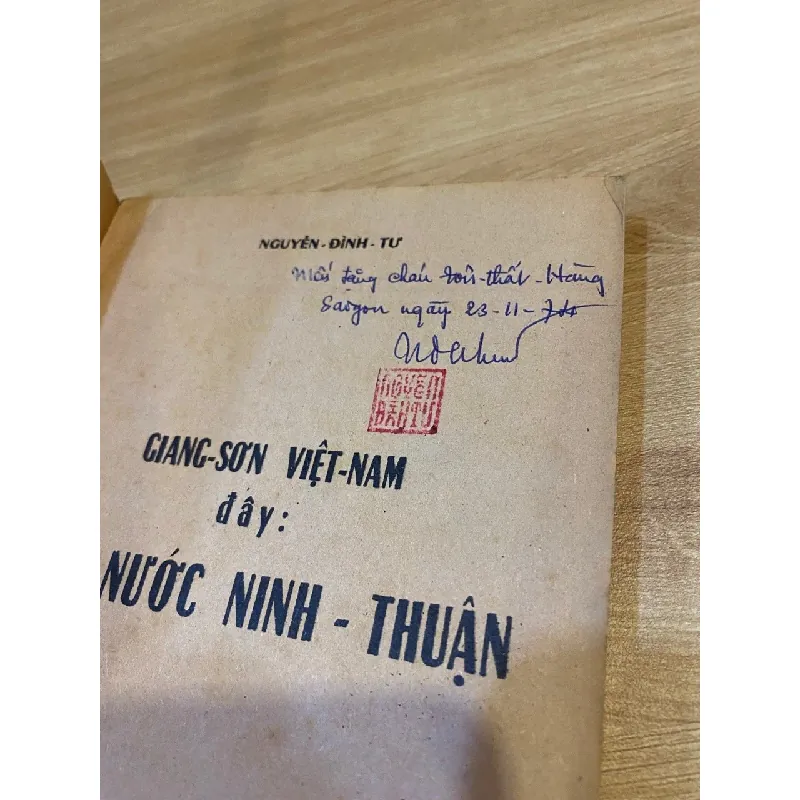 NGUYỄN-ĐÌNH-TƯ
Mến tặng cháu Tôn-thất-Hàng
Saigon ngày 23-11-74
NGUYỄN
ĐÌNH TƯ
GIANG-SƠN VIỆT-NAM
đây:
NƯỚC NINH-THUẬN